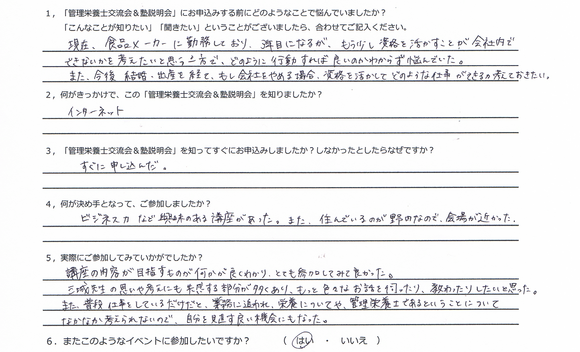 1，「管理栄養士交流会＆塾説明会」にお申込みする前にどのようなことで悩んでいましたか？
「こんなことが知りたい」「聞きたい」ということがございましたら、合わせてご記入ください。
現在、食品メーカーに勤務しており、3年目になるが、もう少し資格を活かすことが会社内で
できないかを考えたいと思う一方で、どのように行動すれば良いのかわからず悩んでいた。
また、今後 結婚・出産を経て、もし会社をやめる場合、資格を活かしてどのような仕事ができるか考えておきたい。
2，何がきっかけで、この「管理栄養士交流会＆塾説明会」を知りましたか？
インターネット
3，「管理栄養士交流会＆塾説明会」を知ってすぐにお申込みしましたか？しなかったとしたらなぜですか？
すぐに申し込んだ。
4，何が決め手となって、ご参加しましたか？
ビジネス力など興味のある講座があった。また、住んでいるのが 野なので、会場が近かった。
5，実際にご参加してみていかがでしたか？
講座の内容が目指すものが何かが良くわかり、とても参加してみて良かった。
三城先生の思いや考えにも共感する部分が多くあり、もっと色々なお話を伺ったり、教わりしたいと思った。
また、普段仕事をしているだけだと、業務に追われ、栄養についてや、管理栄養士であるということについて
なかなか考えられないので、自分を見直す良い機会にもなった。
6，またこのようなイベントに参加したいですか？ （ はい ・ いいえ ）